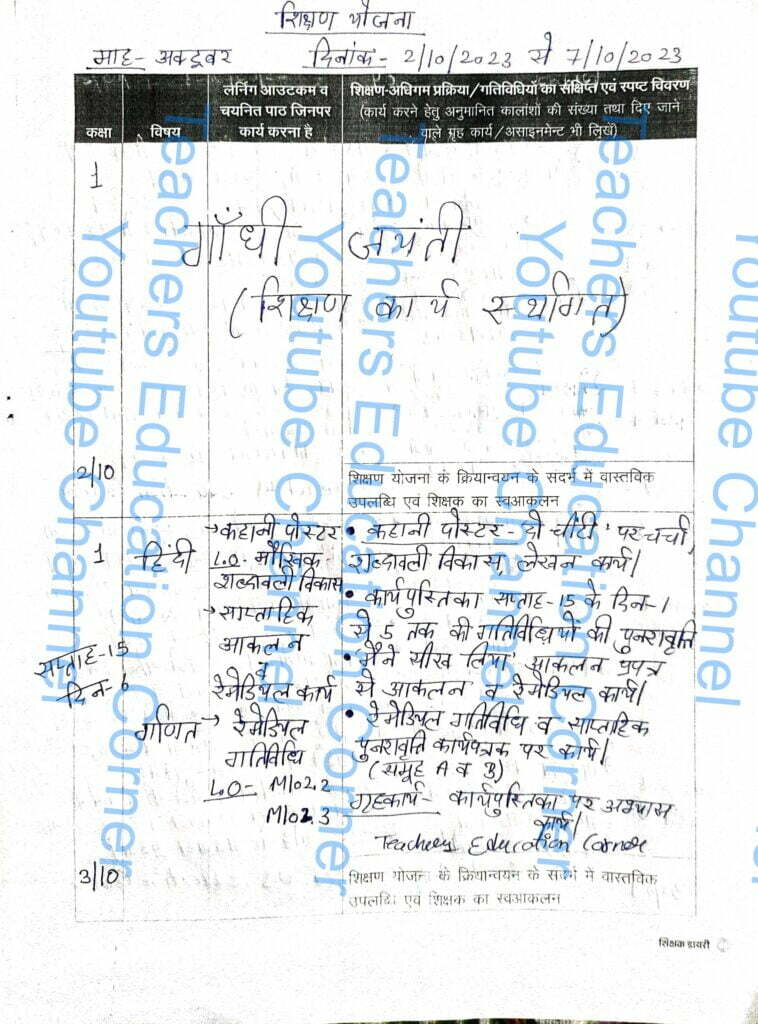 शिक्षण योजना
माह- अक्टूबर दिनांक- 2/10/2023 से 7/10/2023
कक्षा
विषय
लर्निंग आउटकम व
चयनित पाठ जिनपर
कार्य करना है
शिक्षण-अधिगम प्रक्रिया/गतिविधियों का संक्षिप्त एवं स्पष्ट विवरण
(कार्य करने हेतु अनुमानित कालांशों की संख्या तथा दिए जाने
वाले गृह कार्य/असाइनमेन्ट भी लिखें)
1
गाँधी जयंती
(शिक्षण कार्य स्थगित)
2/10
शिक्षण योजना के क्रियान्वयन के संदर्भ में वास्तविक
उपलब्धि एवं शिक्षक का स्वआकलन
1
हिंदी
सप्ताह-15
दिन-6
→कहानी पोस्टर
L.O- मौखिक
शब्दावली विकास
→साप्ताहिक
आकलन
व
रेमेडियल कार्य
• कहानी पोस्टर- 'दो चींटी' पर चर्चा,
शब्दावली विकास, लेखन कार्य।
• कार्यपुस्तिका सप्ताह-15 के दिन-1
से 5 तक की गतिविधियों की पुनरावृति
• मैंने सीख लिया आकलन प्रपत्र
से आकलन व रेमेडियल कार्य।
गणित
→ रेमेडियल
गतिविधि
L.O- M102.2
M102.3
• रेमेडियल गतिविधि व साप्ताहिक
पुनरावृति कार्यपत्रक पर कार्य।
(समूह A व B)
गृहकार्य- कार्यपुस्तिका पर अभ्यास
कार्य।
Teachers Education Corner
3/10
शिक्षण योजना के क्रियान्वयन के संदर्भ में वास्तविक
उपलब्धि एवं शिक्षक का स्वआकलन
शिक्षक डायरी
Teachers Education Corner
Youtube Channel
Teachers Education Corner
Youtube Channel
Teachers Education Corner
Youtube Channel